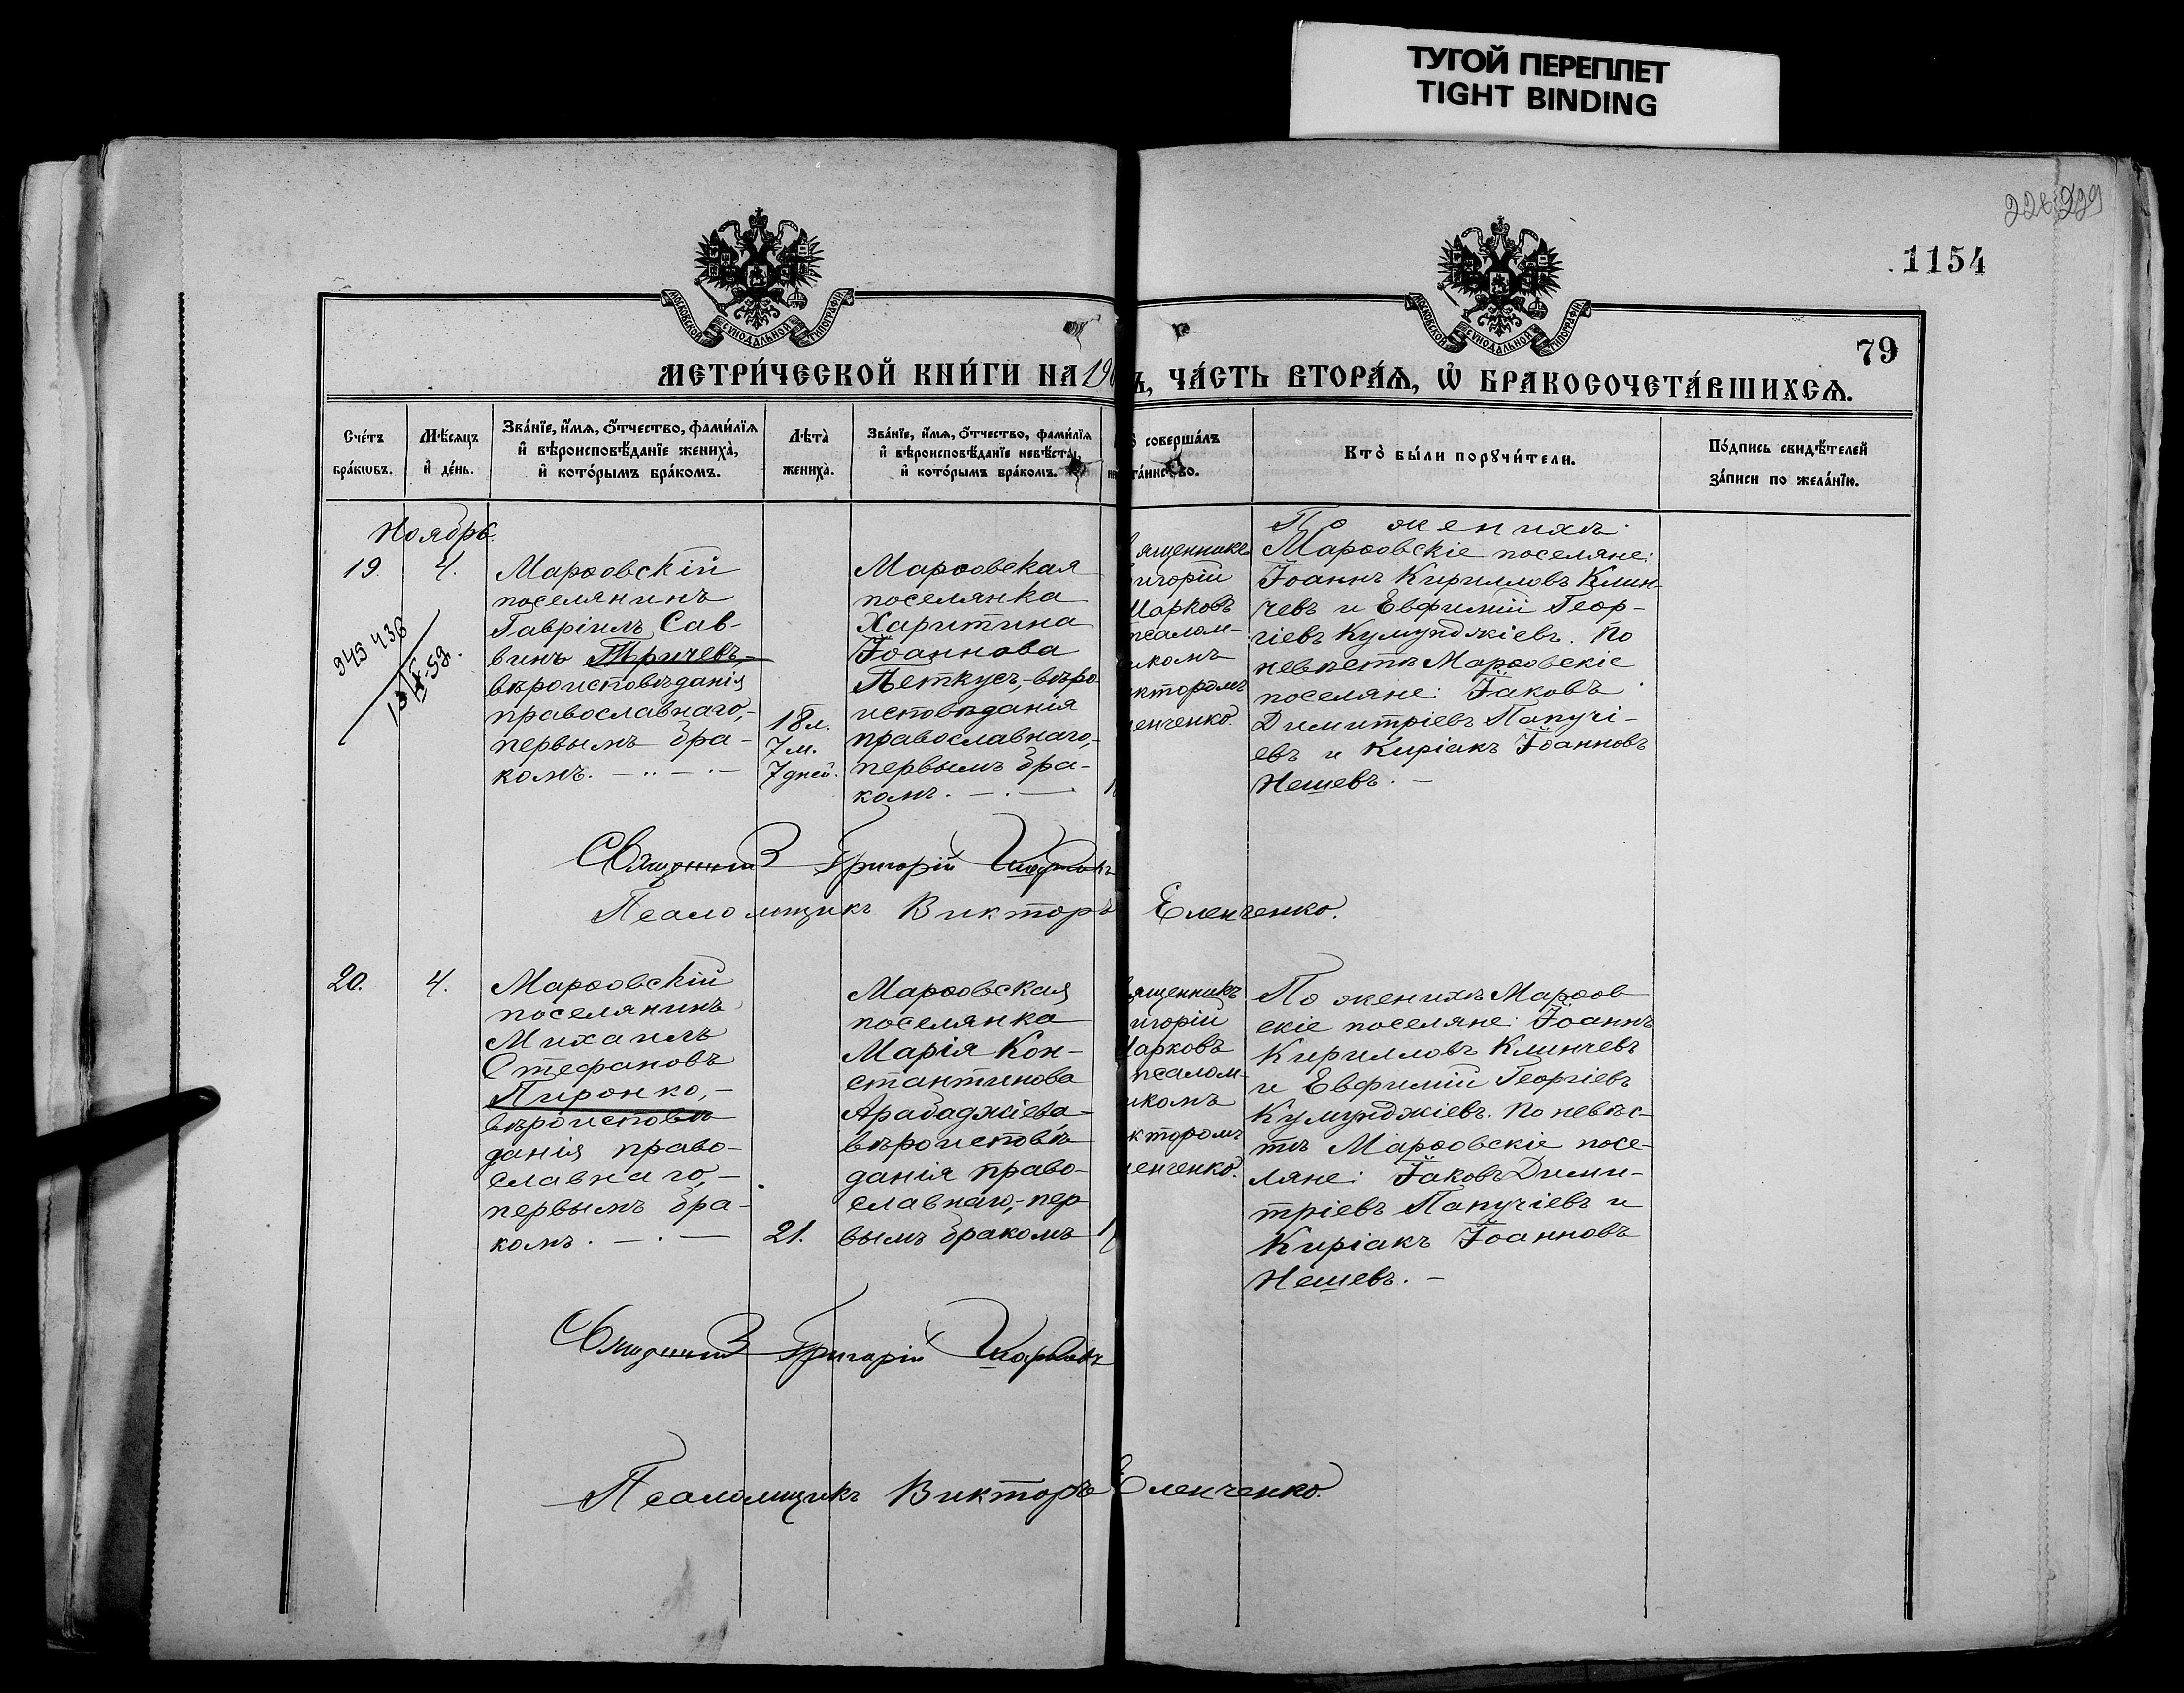 ТУГОЙ ПЕРЕПЛЕТ
TIGHT BINDING
1154
79
МОСКОВСКОЙ СѴНОДАЛЬНОЙ ТИПОГРАФІИ
МОСКОВСКОЙ СѴНОДАЛЬНОЙ ТИПОГРАФІИ
МЕТРИ́ЧЕСКОЙ КНИ́ГИ НА 19
Ъ, ЧА́СТЬ ВТОРА́Ѧ, Ѽ БРАКОСОЧЕТА́ВШИХСѦ.
Сче́тъ
бра́кѡвъ.
Мѣ́сяцъ
и҆ де́нь.
Зва́нїе, и҆́мѧ, ѻ҆́тчество, фами́лїѧ
и҆ вѣроисповѣ́данїе жениха̀,
и҆ кото́рымъ бра́комъ.
Лѣта̀
жениха̀.
Зва́нїе, и҆́мѧ, ѻ҆́тчество, фами́лїѧ
и҆ вѣроисповѣ́данїе невѣ́сты,
и҆ кото́рымъ бра́комъ.
соверша́лъ
та́инство.
Кто̀ бы́ли порꙋчи́тели.
По́дпись свидѣ́телей
за́писи по жела́нїю.
Ноябрь.
19.
4.
949436
Марѳовскій
поселянинъ
Гавріилъ Сав-
винъ Тричевъ,-
вѣроисповѣданія
православнаго,-
первымъ бра-
комъ.
18 л.
7 м.
7 дней.
Марѳовская
поселянка
Харитина
Іоаннова
Петкусъ,-вѣро
исповѣданія
православнаго,-
первымъ бра-
комъ.
ященникъ
игорій
Марковъ
псалом-
икомъ
кторомъ
ленченко.
По женихѣ:
Марѳовскіе поселяне:
Іоаннъ Кирилловъ Клин-
чевъ и Евфимій Геор-
гіевъ Кумунджіевъ. По
невѣстѣ Марѳовскіе
поселяне: Іаковъ
Димитріевъ Папучі-
евъ и Киріакъ Іоанновъ
Нешевъ.-
Священникъ Григорій Марковъ
Псаломщикъ Викторъ Еленченко.
20.
4.
Марѳовскій
поселянинъ
Михаилъ
Стефановъ
Пиронко,-
вѣроисповѣ
данія право-
славнаго,-
первымъ бра-
комъ.
21.
Марѳовская
поселянка
Марія Кон-
стантинова
Арабаджіева-
вѣроисповѣ
данія право-
славнаго,-пер
вымъ бракомъ
ященникъ
игорій
Марковъ
псалом-
икомъ
кторомъ
ленченко.
По женихѣ Марѳов
скіе поселяне: Іоаннъ
Кирилловъ Клинчевъ
и Евфимій Георгіевъ
Кумунджіевъ. По невѣс-
тѣ Марѳовскіе посе-
ляне: Іаковъ Дими-
тріевъ Папучіевъ и
Киріакъ Іоанновъ
Нешевъ.-
Священникъ Григорій Марковъ
Псаломщикъ Викторъ Еленченко.